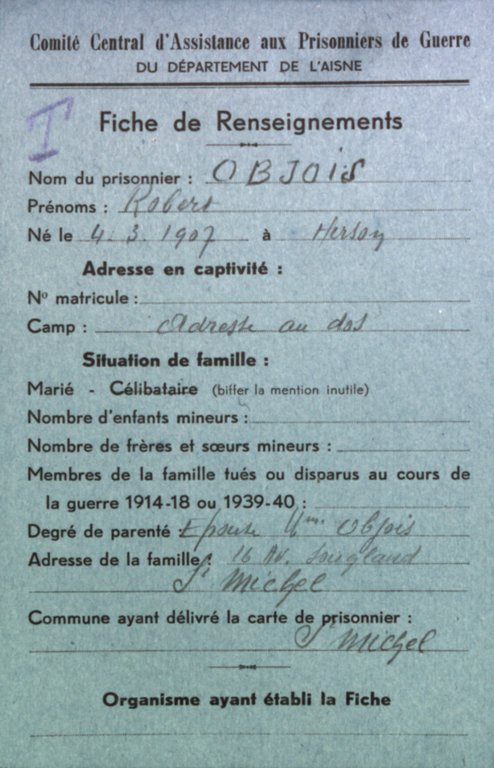 Comité Central d'Assistance aux Prisonniers de Guerre
DU DÉPARTEMENT DE L'AISNE
I
Fiche de Renseignements
Nom du prisonnier : OBJOIS
Prénoms : Robert
Né le 4. 3. 1907 à Herson
Adresse en captivité :
Nº matricule :
Camp : Adresse au dos
Situation de famille :
Marié - Célibataire (biffer la mention inutile)
Nombre d'enfants mineurs :
Nombre de frères et sœurs mineurs :
Membres de la famille tués ou disparus au cours de
la guerre 1914-18 ou 1939-40 :
Degré de parenté : Epouse Mme Objois
Adresse de la famille : 16 Av. Sougland
St Michel
Commune ayant délivré la carte de prisonnier :
St Michel
Organisme ayant établi la Fiche